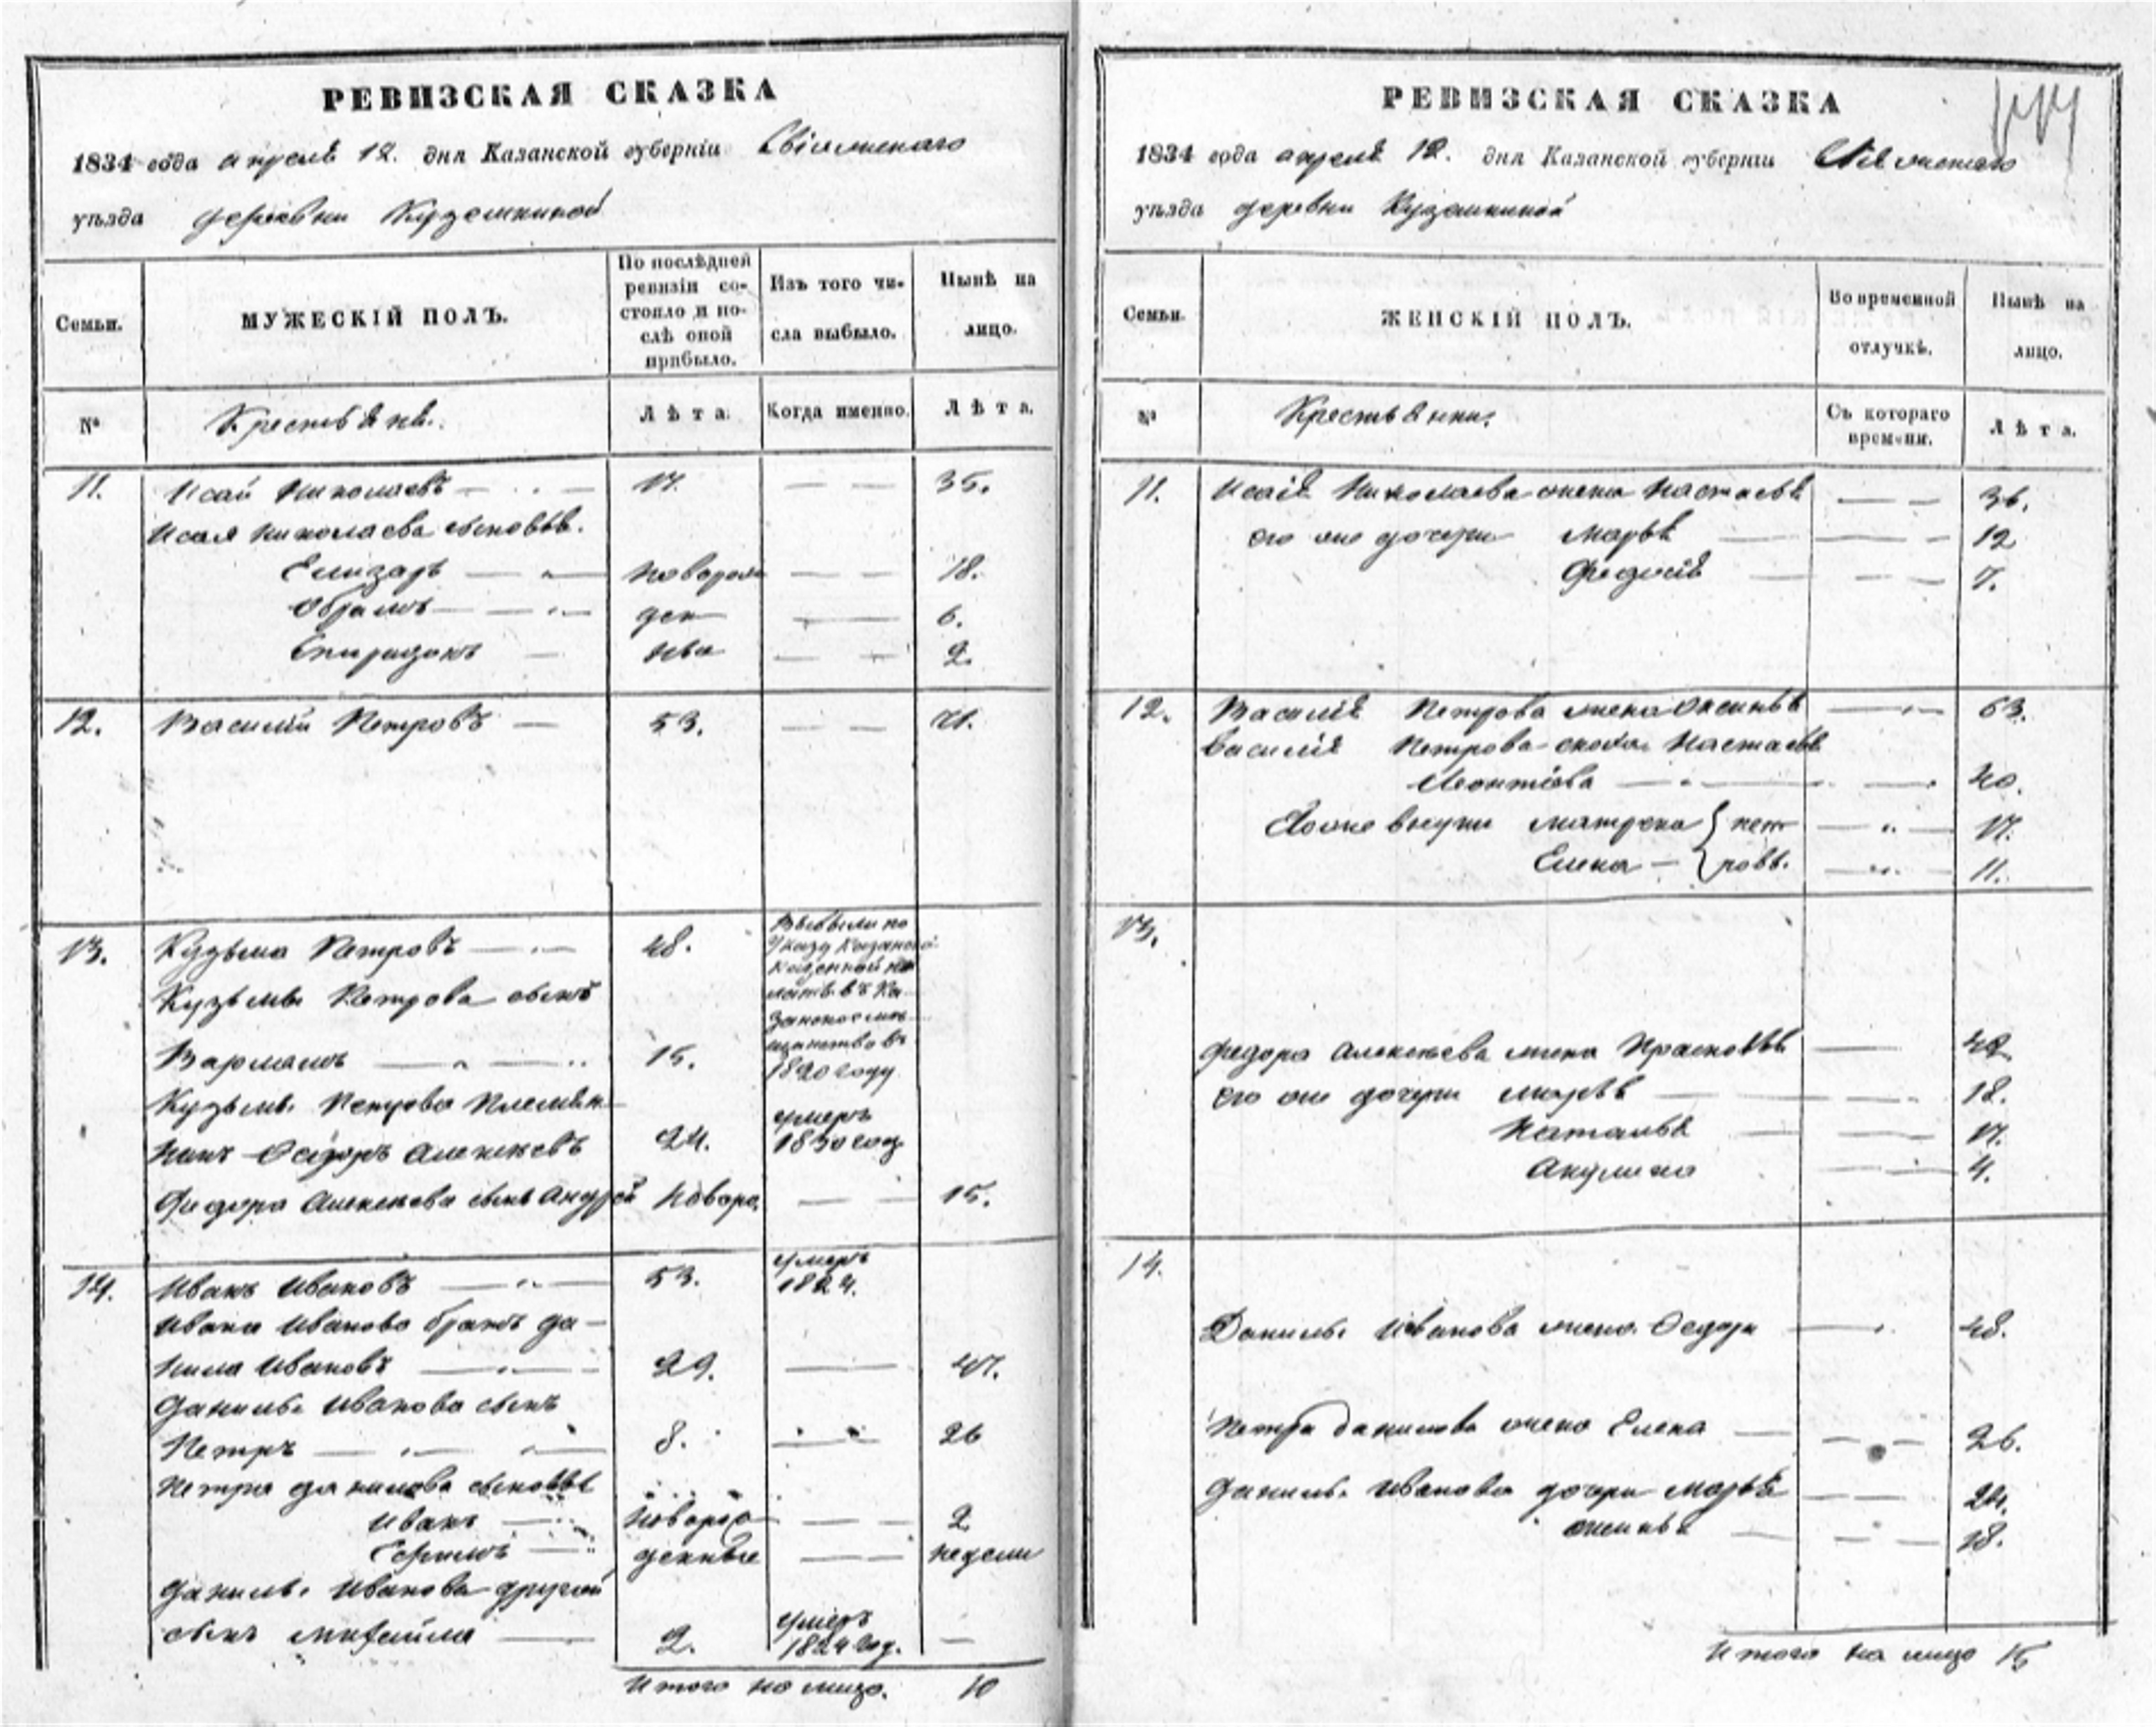 РЕВИЗСКАЯ СКАЗКА
1834 года апреля 12. дня Казанской губерніи Свіяжскаго
уѣзда деревни Куземкиной
Семьи.
МУЖЕСКІЙ ПОЛЪ.
По послѣдней
ревизіи со-
стояло и по-
слѣ оной
прибыло.
Изъ того чи-
сла выбыло.
Нынѣ на
лицо.
№
Крестьяне.
Лѣта.
Когда именно.
Лѣта.
11. Исай Николаевъ 17. 35.
Исая Николаева сыновья.
Елизаръ новорож 18.
Обрамъ ден 6.
Спиридонъ ныя 2.
12. Василій Петровъ 53. 71.
13. Кузьма Петровъ 48.
Выбыли по
Указу Казанской
Казенной па
латы въ Ка
занское мѣ
щанство въ
1820 году
Кузьмы Петрова сынъ
Варламъ 15.
Кузьмы Петрова Племян
никъ Федоръ Алексѣевъ 24. умеръ 1830 год
Федора Алексѣева сынъ Андрей новоро. 15.
14. Иванъ Ивановъ 53. умеръ 1824.
Ивана Иванова братъ Да-
нила Ивановъ 29. 47.
Данилы Иванова сынъ
Петръ 8. 26
Петра Данилова сыновья
Иванъ новоро 2
денные недели
Данилы Иванова другой
сынъ Михайла 2. умеръ 1824 год.
Итого на лицо. 10
РЕВИЗСКАЯ СКАЗКА
1834 года апреля 12. дня Казанской губерніи Свіяжскаго
уѣзда деревни Куземкиной
Семьи.
ЖЕНСКІЙ ПОЛЪ.
Во временной
отлучкѣ.
Нынѣ на
лицо.
№
Крестьянки.
Съ котораго
времени.
Лѣта.
11. Исаія Николаева жена Настасья 36.
его же дочери Марья 12
Федосія 7.
12. Василія Петрова жена Оксинья 63.
Василія Петрова сноха Настасья
Леонтіева 40.
Его же внуки Матрена пет 17.
Елена ровы. 11.
13.
Федора Алексѣева жена Прасковья 42
его же дочери Марья 18.
Наталья 17.
Акулина 4.
14.
Данилы Иванова жена Федора 48.
Петра Данилова жена Елена 26.
Данилы Иванова дочери Марья 24.
18.
Итого на лицо 15